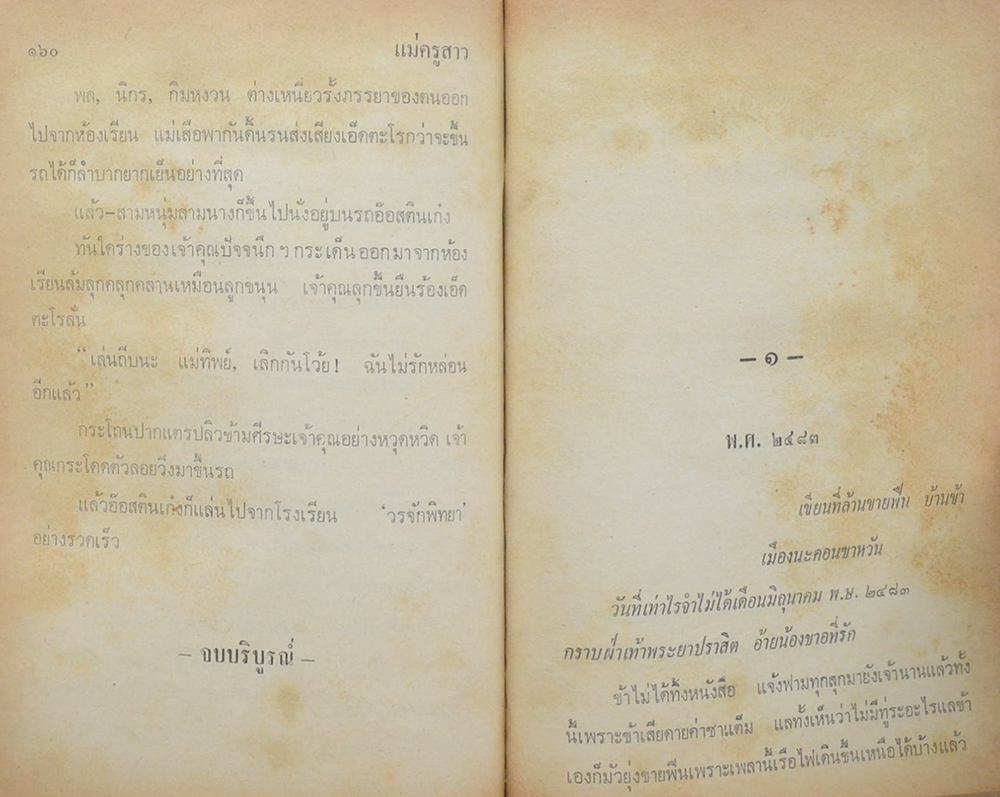 ๑๖๐ แม่ครูสาว
พล, นิกร, กิมหงวน ต่างเหนี่ยวรั้งภรรยาของตนออก
ไปจากห้องเรียน แม่เสือพากันดิ้นรนส่งเสียงเอ็ดตะโรกว่าจะขึ้น
รถได้ก็ลำบากยากเย็นอย่างที่สุด
แล้ว–สามหนุ่มสามนางก็ขึ้นไปนั่งอยู่บนรถอ๊อสตินเก๋ง
ทันใดร่างของเจ้าคุณปัจจนึก ฯ กระเด็นออกมาจากห้อง
เรียนล้มลุกคลุกคลานเหมือนลูกขนุน เจ้าคุณลุกขึ้นยืนร้องเอ็ด
ตะโรลั่น
“เล่นถีบนะ แม่ทิพย์, เลิกกันโว้ย! ฉันไม่รักหล่อน
อีกแล้ว”
กระโถนปากแตรปลิวข้ามศีรษะเจ้าคุณอย่างหวุดหวิด เจ้า
คุณกระโดดตัวลอยวิ่งมาขึ้นรถ
แล้วอ๊อสตินเก๋งก็แล่นไปจากโรงเรียน ‘วรจักพิทยา’
อย่างรวดเร็ว
– จบบริบูรณ์ –
– ๑ –
พ.ศ. ๒๔๘๓
เขียนที่ล้านขายฟืน บ้านข้า
เมืองนะคอนซาหวัน
วันที่เท่าไรจำไม่ได้เดือนมิถุนาคม พ.ษ. ๒๔๘๓
กราบฝ่าเท้าพระยาปราสิต อ้ายน้องขาอที่รัก
ข้าไม่ได้ทิ้งหนังสือ แจ้งฟามทุกสุกมายังเจ้านานแล้วทั้ง
นี้เพราะข้าเสียดายค่าซาแต็ม แลทั้งเห็นว่าไม่มีทู่ระอะไรแลข้า
เองก็มัวยุ่งขายฟืนเพราะเพลานี้เรือไฟเดินขึ้นเหนือได้บ้างแล้ว